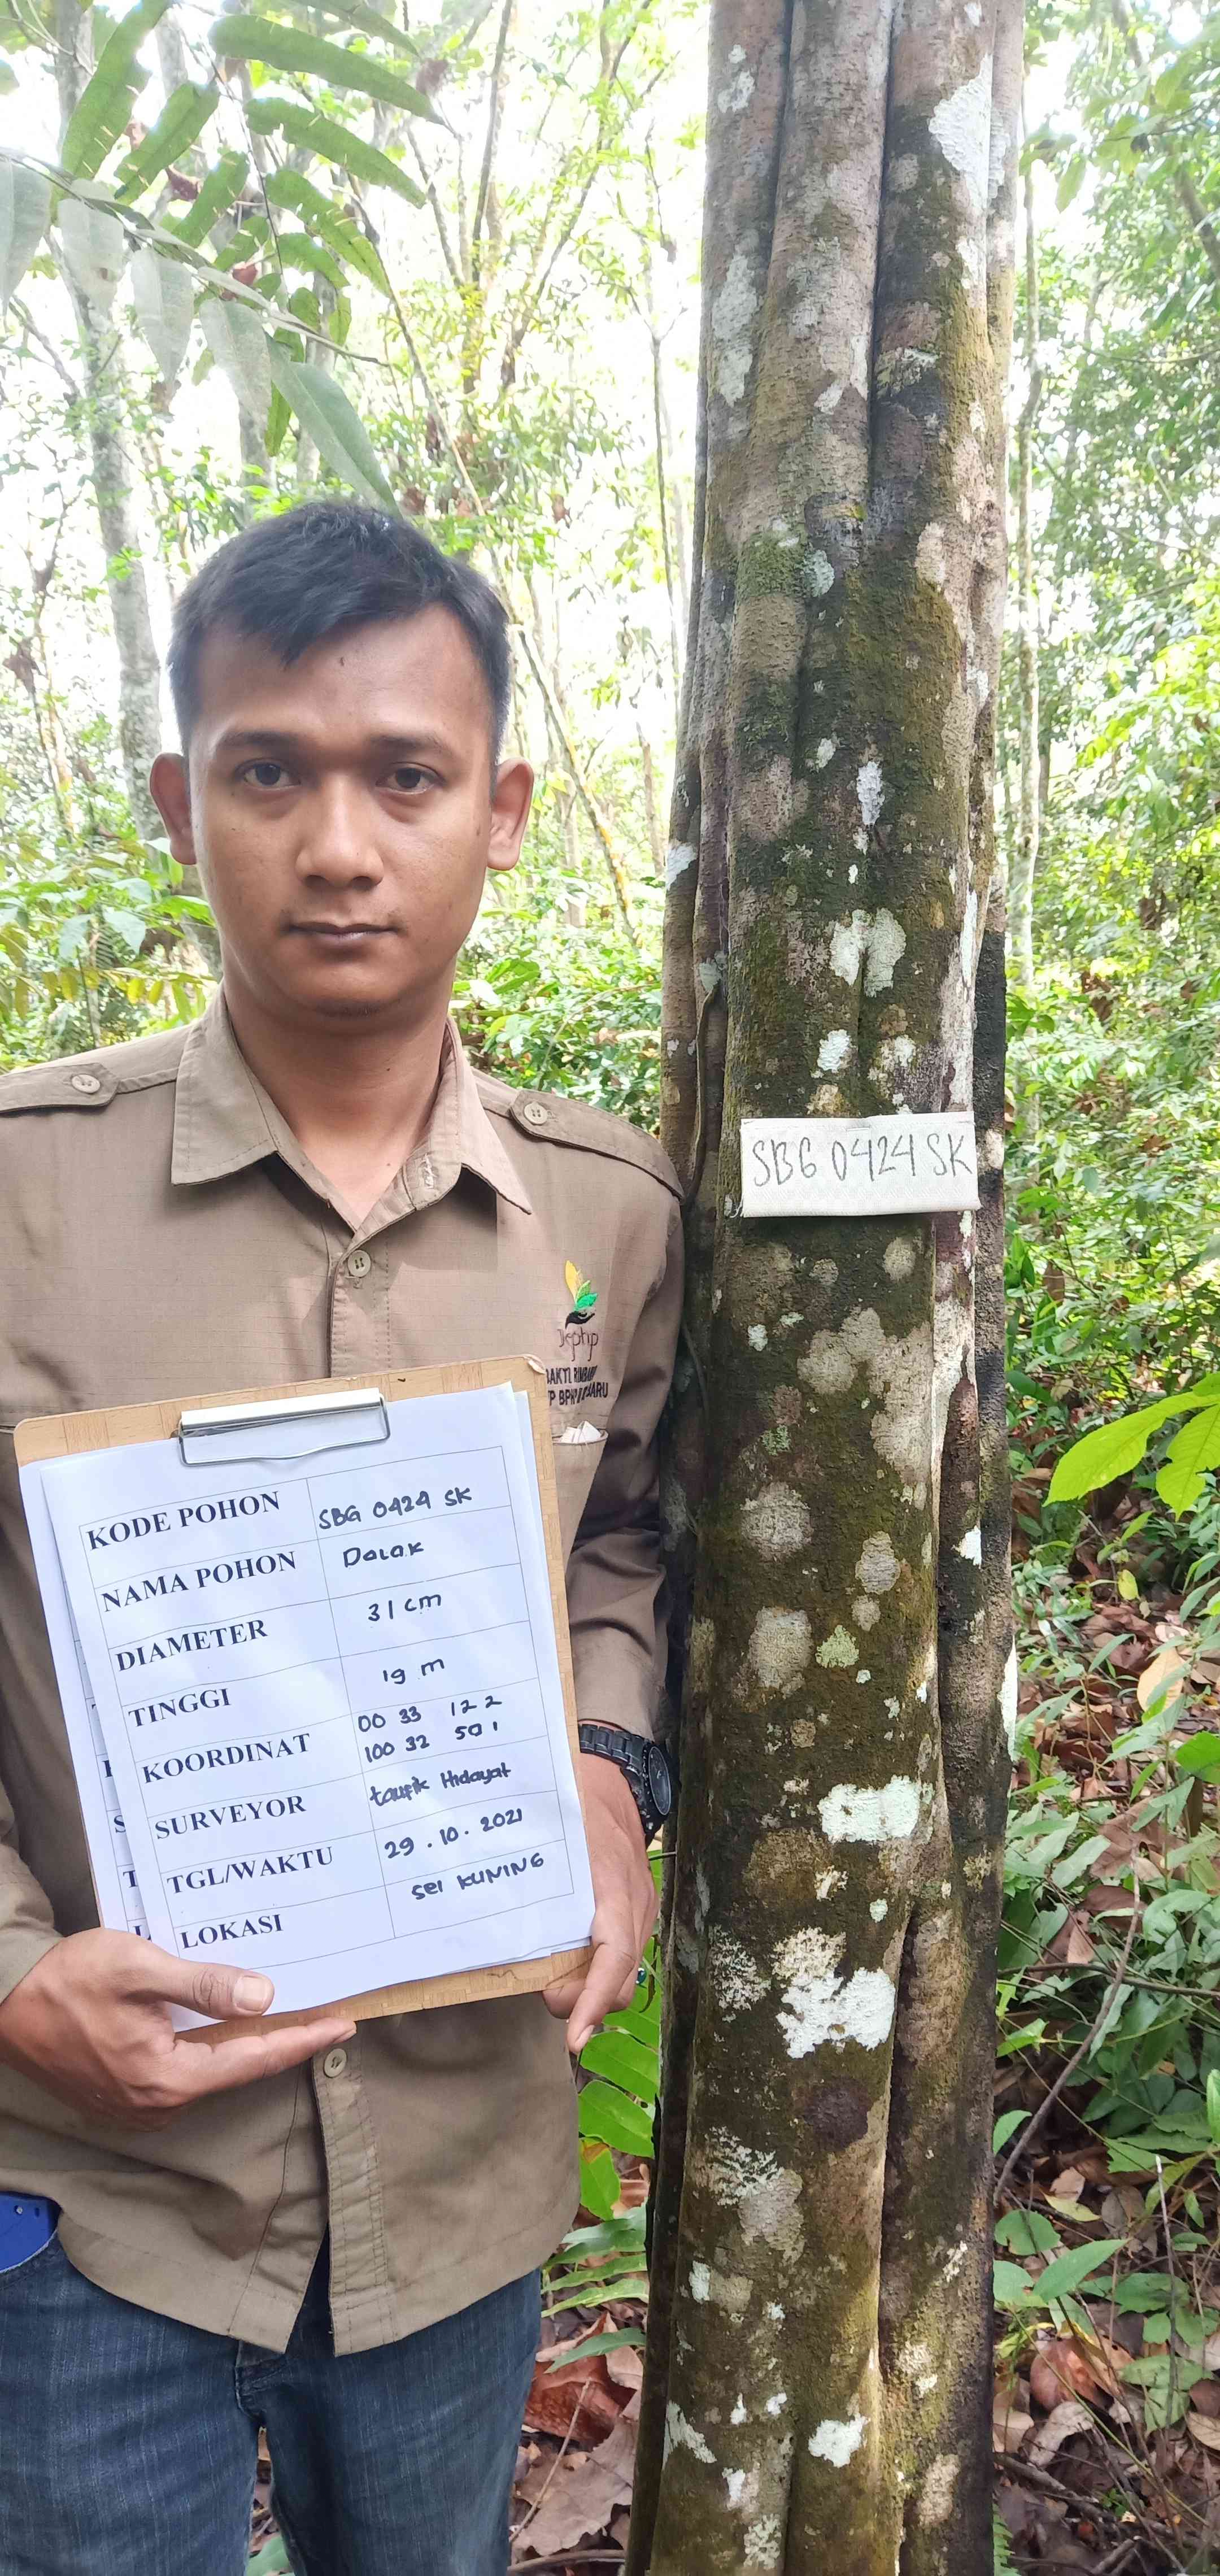 SBG 0424 SK
Jephp
KODE POHON SBG 0424 SK
NAMA POHON Dalak
DIAMETER 31 cm
TINGGI 19 m
KOORDINAT 00 33 12 2
100 32 50 1
SURVEYOR taufik Hidayat
TGL/WAKTU 29 . 10 . 2021
LOKASI sei KUNING